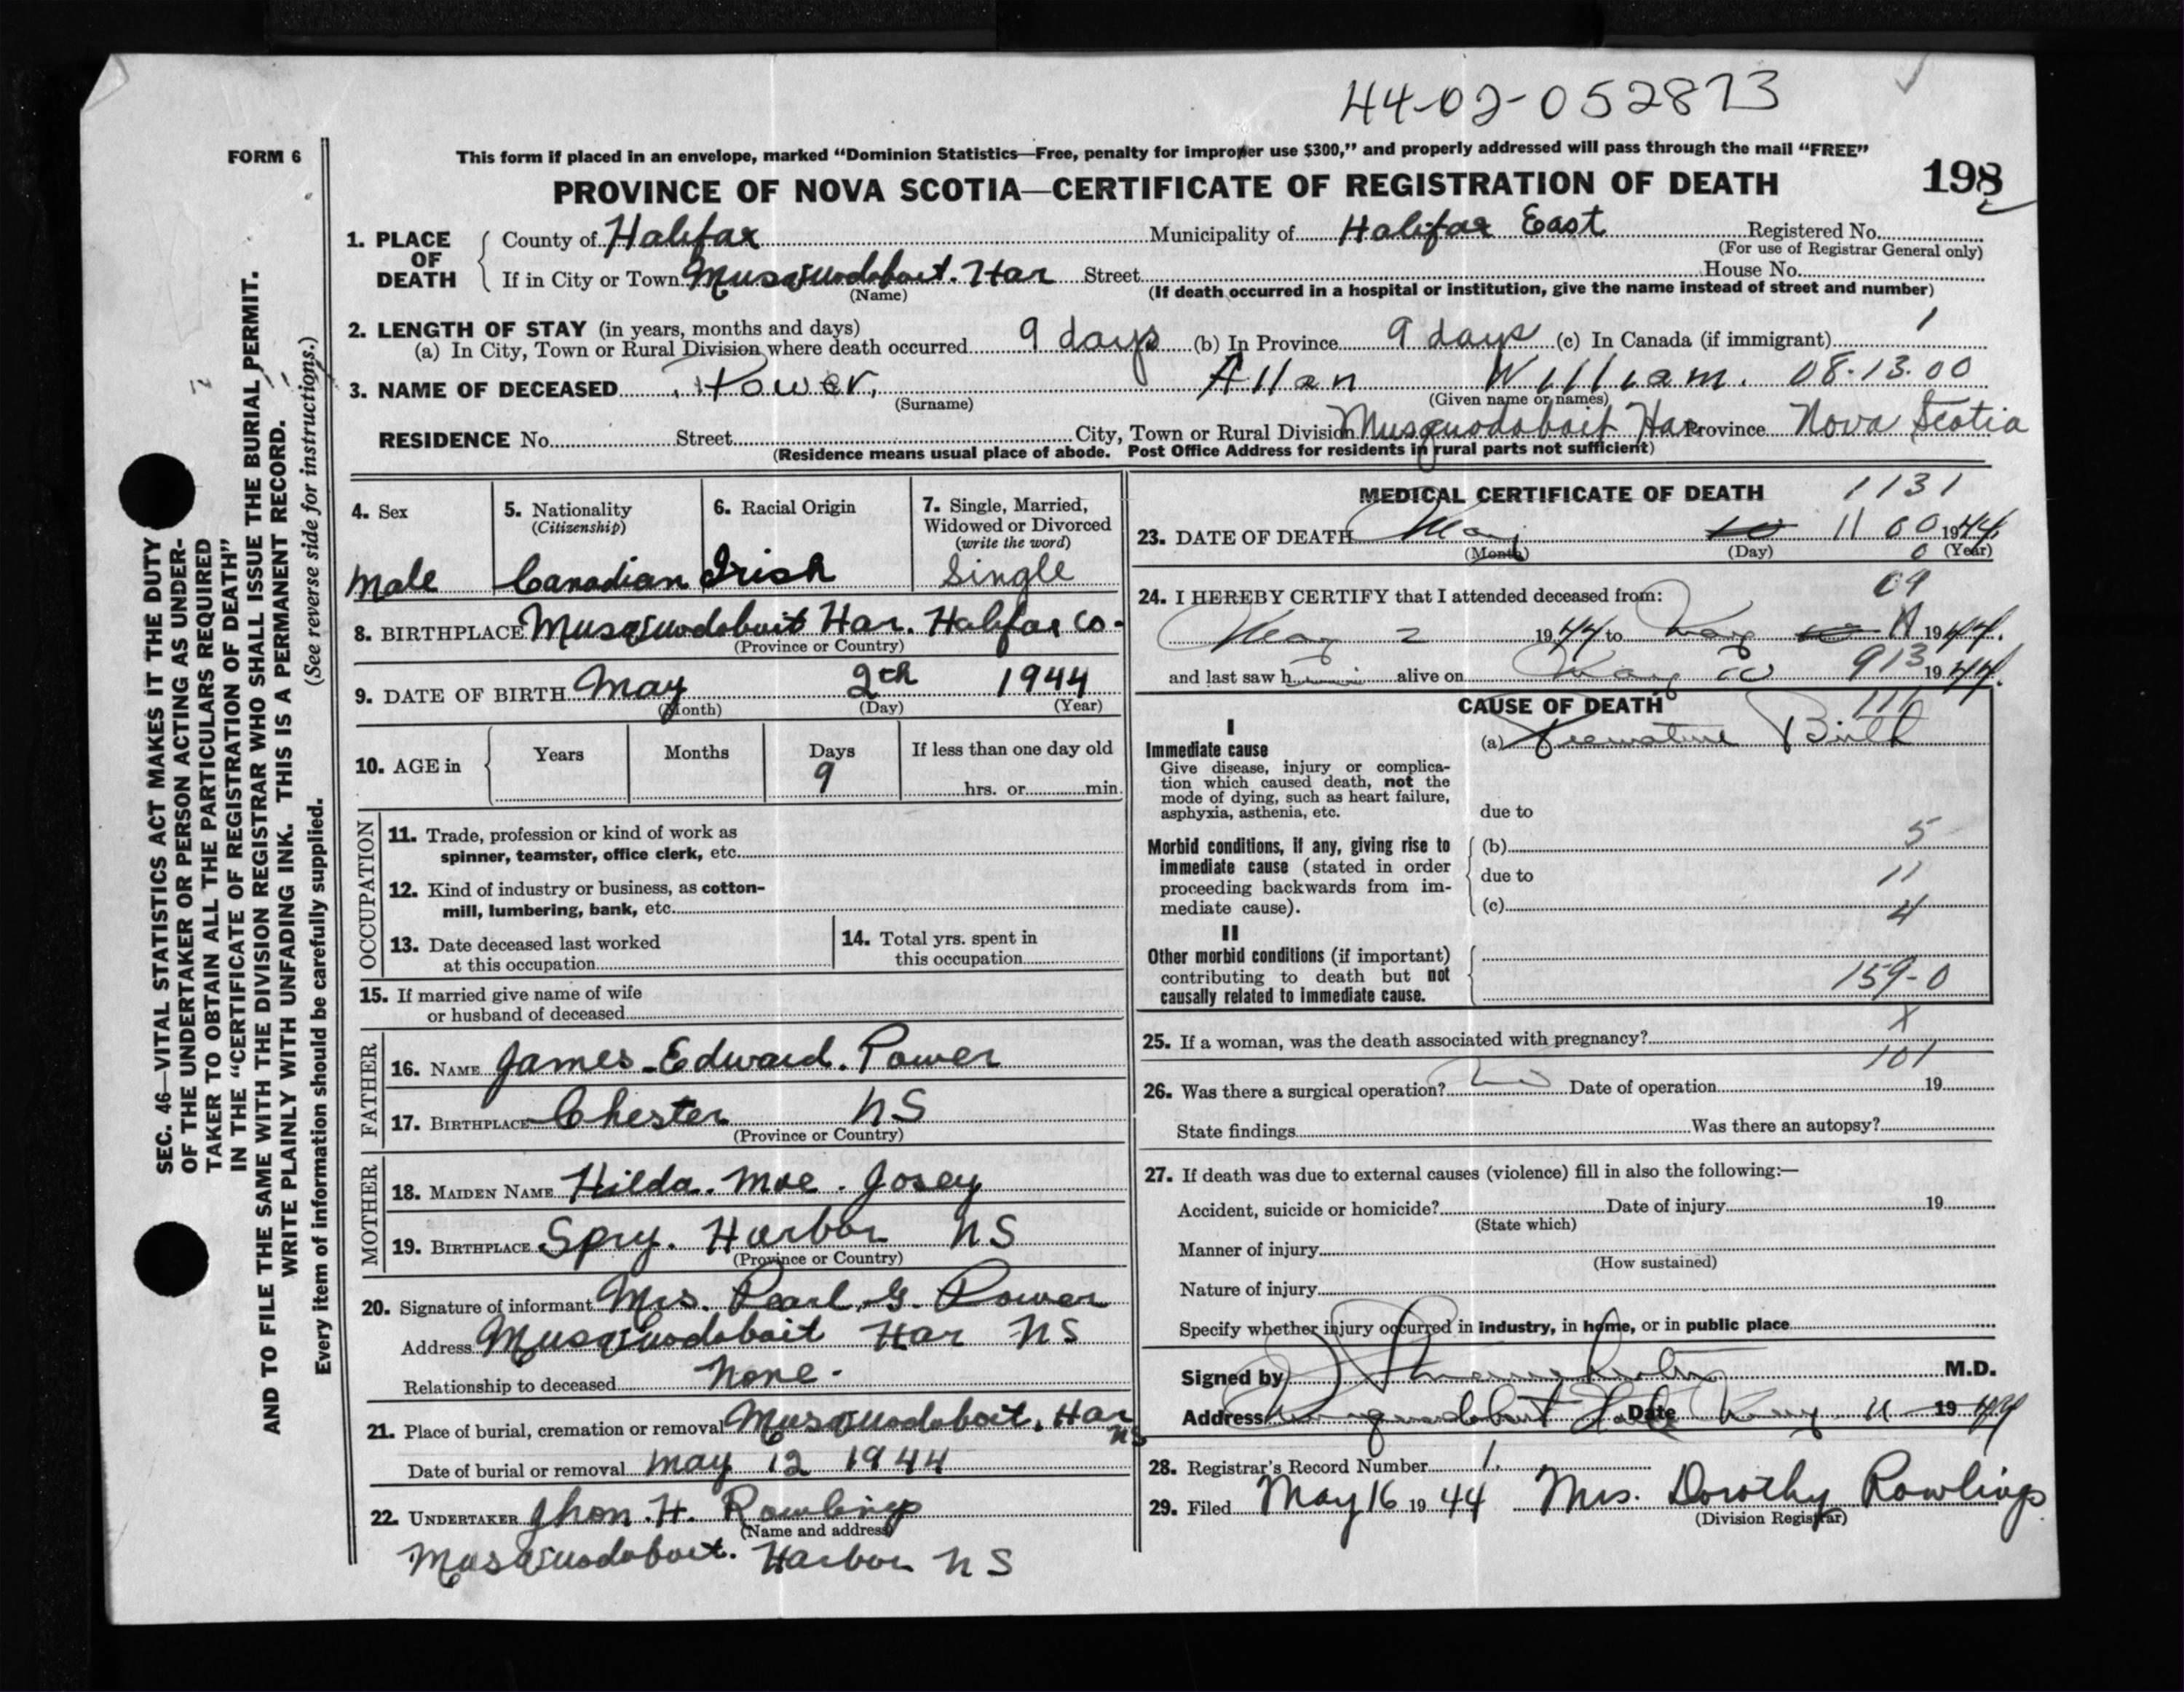 44-02-052873
FORM 6
This form if placed in an envelope, marked “Dominion Statistics—Free, penalty for improper use $300,” and properly addressed will pass through the mail “FREE”
PROVINCE OF NOVA SCOTIA—CERTIFICATE OF REGISTRATION OF DEATH
198
SEC. 46—VITAL STATISTICS ACT MAKES IT THE DUTY
OF THE UNDERTAKER OR PERSON ACTING AS UNDER-
TAKER TO OBTAIN ALL THE PARTICULARS REQUIRED
IN THE “CERTIFICATE OF REGISTRATION OF DEATH”
AND TO FILE THE SAME WITH THE DIVISION REGISTRAR WHO SHALL ISSUE THE BURIAL PERMIT.
WRITE PLAINLY WITH UNFADING INK. THIS IS A PERMANENT RECORD.
Every item of information should be carefully supplied. (See reverse side for instructions.)
1. PLACE OF DEATH
County of Halifax Municipality of Halifax East Registered No.
(For use of Registrar General only)
If in City or Town Musquodoboit. Har Street House No.
(Name) (If death occurred in a hospital or institution, give the name instead of street and number)
2. LENGTH OF STAY (in years, months and days)
(a) In City, Town or Rural Division where death occurred 9 days (b) In Province 9 days (c) In Canada (if immigrant) 1
3. NAME OF DECEASED Power, Allan William. 08-13-00
(Surname) (Given name or names)
RESIDENCE No. Street City, Town or Rural Division Musquodoboit Har Province Nova Scotia
(Residence means usual place of abode. Post Office Address for residents in rural parts not sufficient)
4. Sex
Male
5. Nationality
(Citizenship)
Canadian
6. Racial Origin
Irish
7. Single, Married,
Widowed or Divorced
(write the word)
Single
8. BIRTHPLACE Musquodoboit Har. Halifax Co.
(Province or Country)
9. DATE OF BIRTH May 2th 1944
(Month) (Day) (Year)
10. AGE in
Years Months Days If less than one day old
9 hrs. or min.
OCCUPATION
11. Trade, profession or kind of work as
spinner, teamster, office clerk, etc.
12. Kind of industry or business, as cotton-
mill, lumbering, bank, etc.
13. Date deceased last worked
at this occupation
14. Total yrs. spent in
this occupation
15. If married give name of wife
or husband of deceased
FATHER
16. NAME James. Edward. Power
17. BIRTHPLACE Chester NS
(Province or Country)
MOTHER
18. MAIDEN NAME Hilda. Mae. Josey
19. BIRTHPLACE Spry. Harbor NS
(Province or Country)
20. Signature of informant Mrs. Pearl. G. Power
Address Musquodoboit Har NS
Relationship to deceased None.
21. Place of burial, cremation or removal Musquodoboit. Har NS
Date of burial or removal May 12 1944
22. UNDERTAKER Jhon. H. Rowlings
(Name and address)
Musquodoboit. Harbor NS
MEDICAL CERTIFICATE OF DEATH 1131
23. DATE OF DEATH May 10 11 00 1944
(Month) (Day) 0 (Year)
24. I HEREBY CERTIFY that I attended deceased from: 09
May 2 1944 to May 10 11 1944.
and last saw h alive on May 10 913 1944.
CAUSE OF DEATH 111
I
Immediate cause
Give disease, injury or complica-
tion which caused death, not the
mode of dying, such as heart failure,
asphyxia, asthenia, etc.
(a) Premature Birth
due to
Morbid conditions, if any, giving rise to
immediate cause (stated in order
proceeding backwards from im-
mediate cause).
(b) 5
due to 11
(c) 4
II
Other morbid conditions (if important)
contributing to death but not
causally related to immediate cause.
159-0
X
25. If a woman, was the death associated with pregnancy?
101
26. Was there a surgical operation? No Date of operation 19
State findings Was there an autopsy?
27. If death was due to external causes (violence) fill in also the following:—
Accident, suicide or homicide? Date of injury 19
(State which)
Manner of injury
(How sustained)
Nature of injury
Specify whether injury occurred in industry, in home, or in public place
Signed by M.D.
Address Musquodoboit Date May 11 1944
28. Registrar’s Record Number 1.
29. Filed May 16 1944 Mrs. Dorothy Rowlings
(Division Registrar)